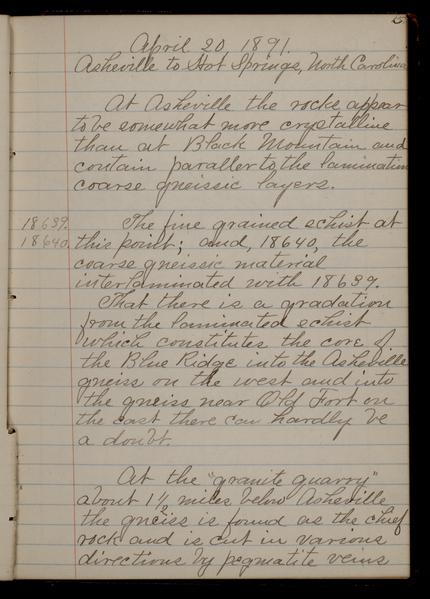 5
April 20, 1891.
Asheville to Hot Springs, North Carolina
At Asheville the rocks appear
to be somewhat more crystalline
than at Black Mountain and
contain parallel to the lamination
coarse gneissic layers.
18639. The fine grained schist at
18640. this point; and, 18640, the
coarse gneissic material
interlaminated with 18639.
That there is a gradation
from the laminated schist
which constitutes the core of
the Blue Ridge into the Asheville
gneiss on the west and into
the gneiss near Old Fort on
the east there can hardly be
a doubt.
At the "granite quarry"
about 1½ miles below Asheville
the gneiss is found as the chief
rock and is cut in various
directions by pegmatite veins